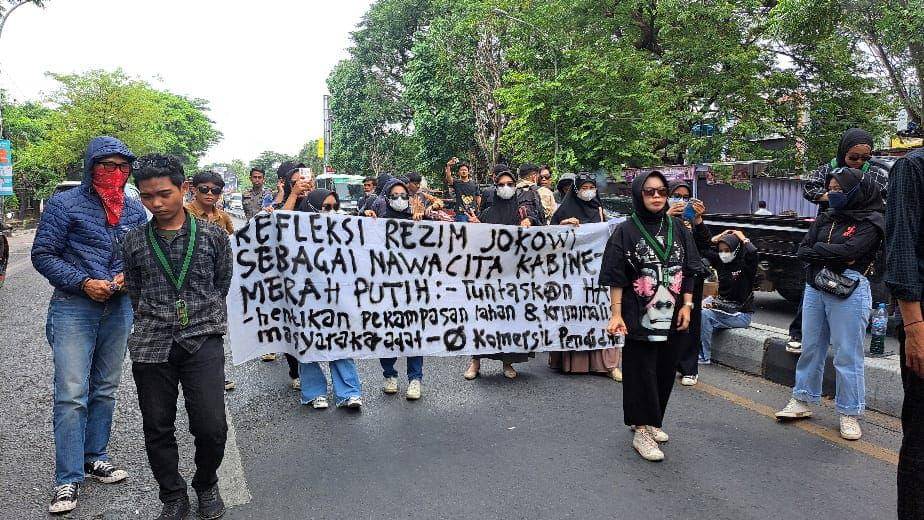 REFLEKSI REZIM JOKOWI
SEBAGAI NAWACITA KABINE-
MERAH PUTIH: - TUNTASKAN HA
- hentikan pekampasan lahan & kriminalis
masyarakat adat - Ø Komersil Pendidi